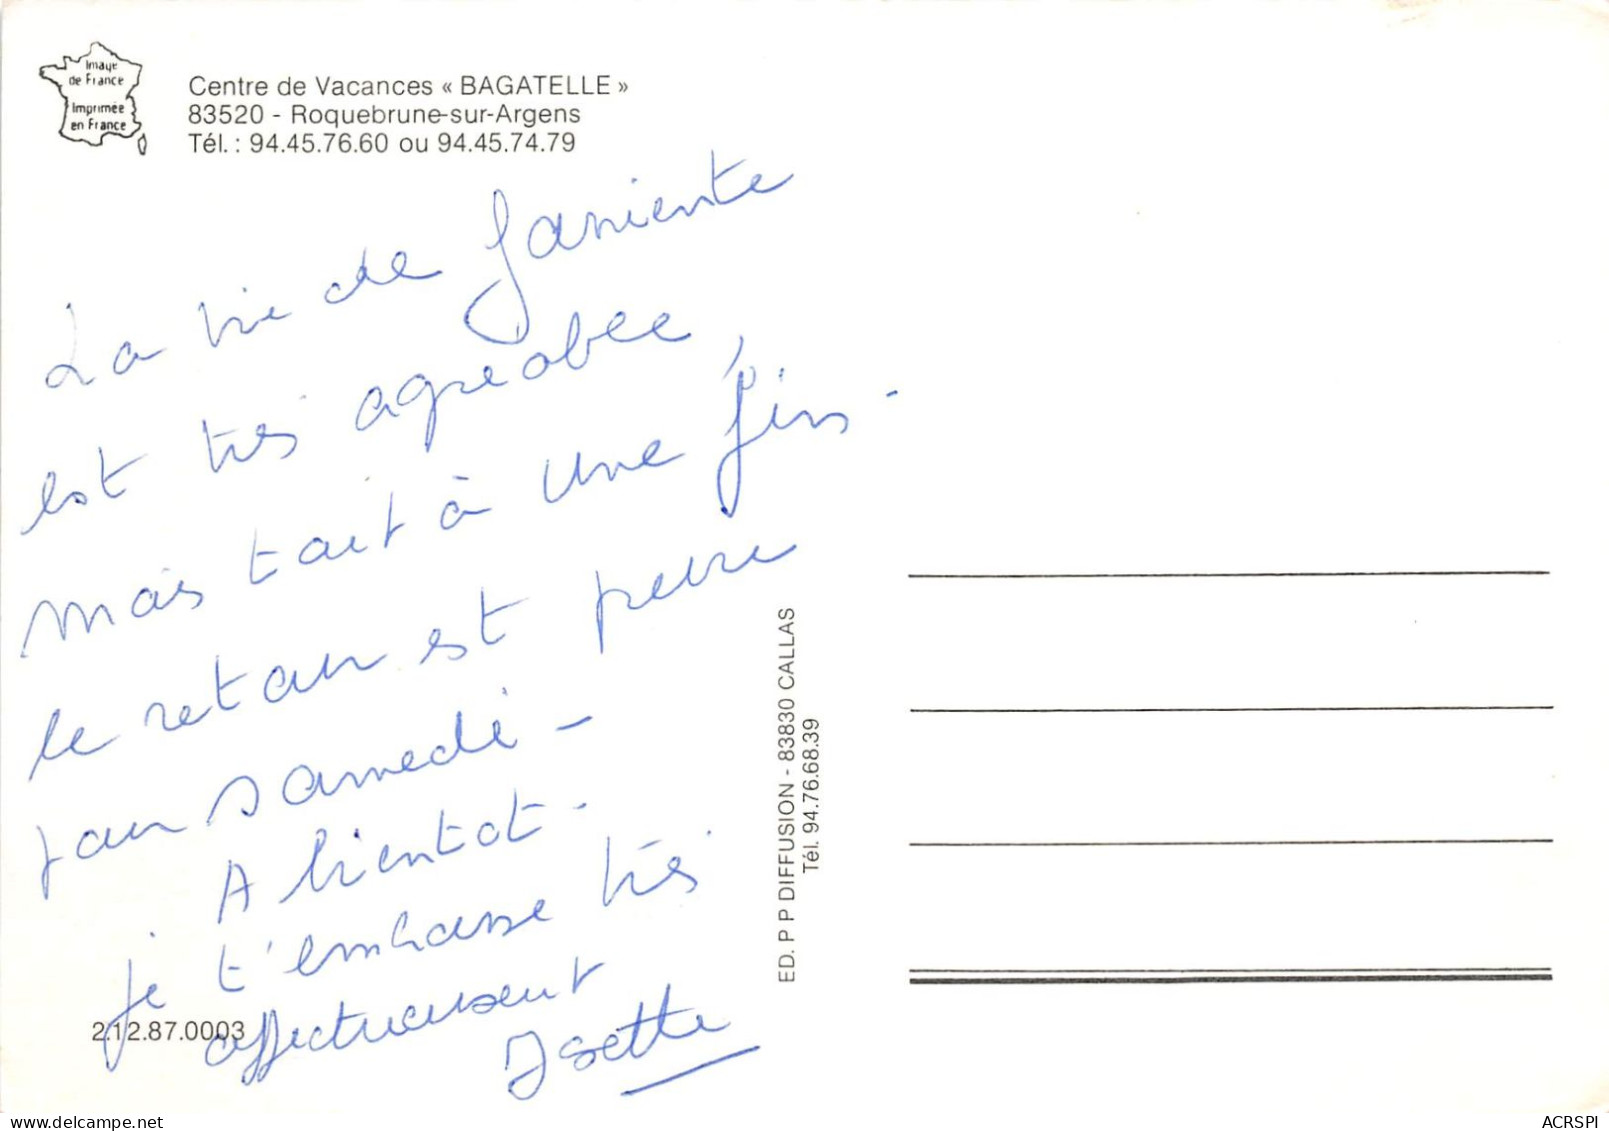 Image
de France
Imprimée
en France
Centre de Vacances « BAGATELLE »
83520 - Roquebrune-sur-Argens
Tél. : 94.45.76.60 ou 94.45.74.79
La vie de faniente
est très agréable,
mais tait à une fin.
le retour est prevu
pour samedi -
A bientot.
je t'embrasse très
affectueusement
Josette
2.12.87.0003
ED. P P DIFFUSION - 83830 CALLAS
Tél. 94.76.68.39
ACRSPI